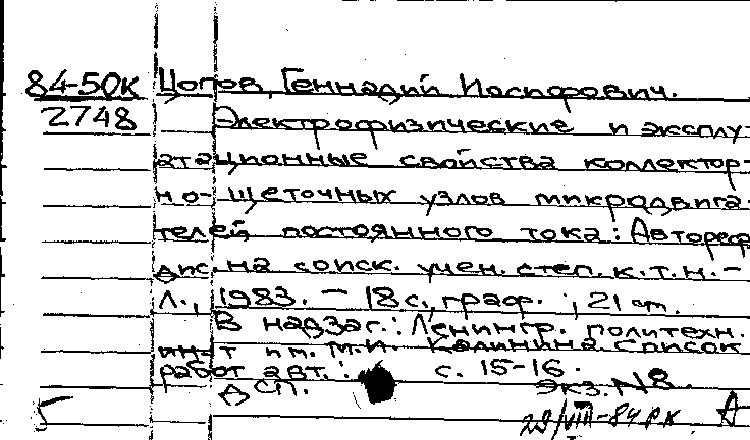 84-50к Цогов, Геннадий Иосифович.
2748 Электрофизические и эксплу-
атационные свойства коллектор-
но-щеточных узлов микродвига-
телей постоянного тока: Автореф
дис. на соиск. учен. степ. к.т.н. -
Л., 1983. - 18 с., граф. ; 21 см.
В надзаг.: Ленингр. политехн.
ин-т им. М.И. Калинина. Список
работ авт.: с. 15-16.
ДСП. экз. №8.
5 29/VIII-84 РК А